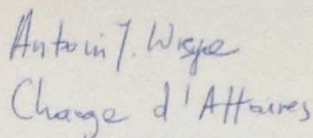 Antoin J.
Charge d'Affaires